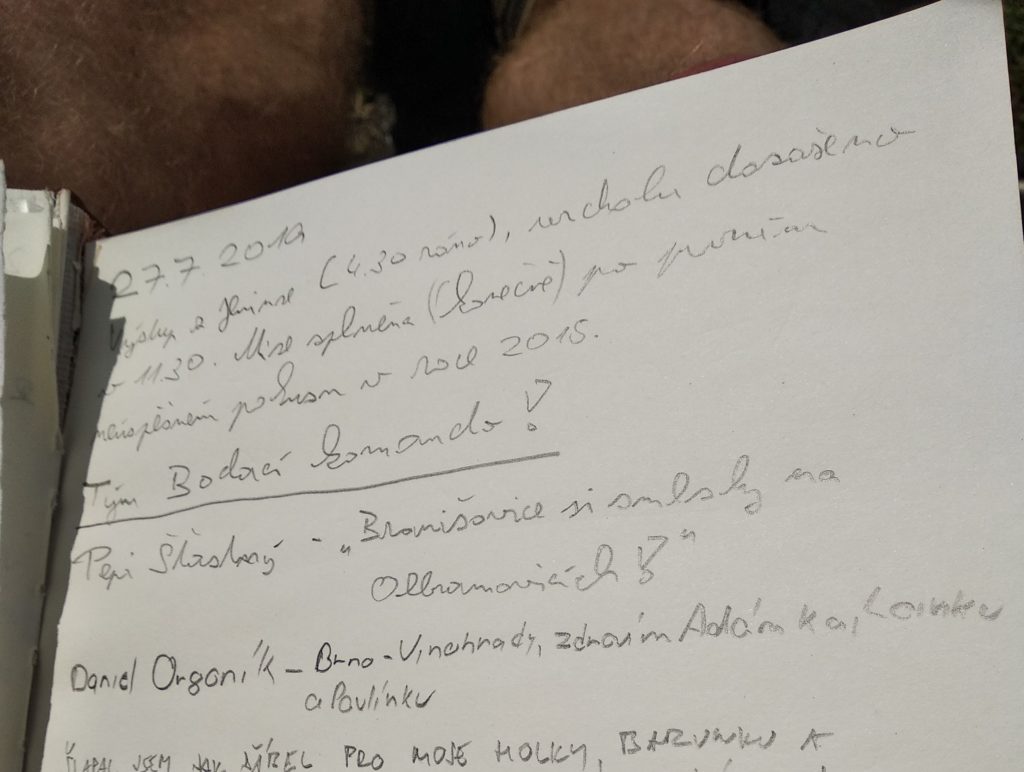 27.7. 2019
Výstup z (4.30 ráno), vrcholu dosaženo
v 11.30. Mise splněna (konečně) po prvním
neúspěšném pokusu v roce 2015.
Tým Bodací komando!
Pepi Šťastný - „Branišovice si smlsly na
Olbramovicích!"
Daniel Organík - Brno-Vinohrady, zdravím Adámka,
a Pavlínku
JSEM JAK PRO MOJE HOLKY, BARUNKU A